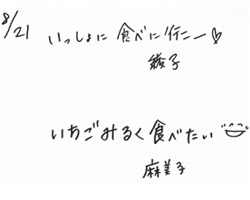 8/21
いっしょに食べに行こー♡
綾子
いちごみるく食べたい
麻美子